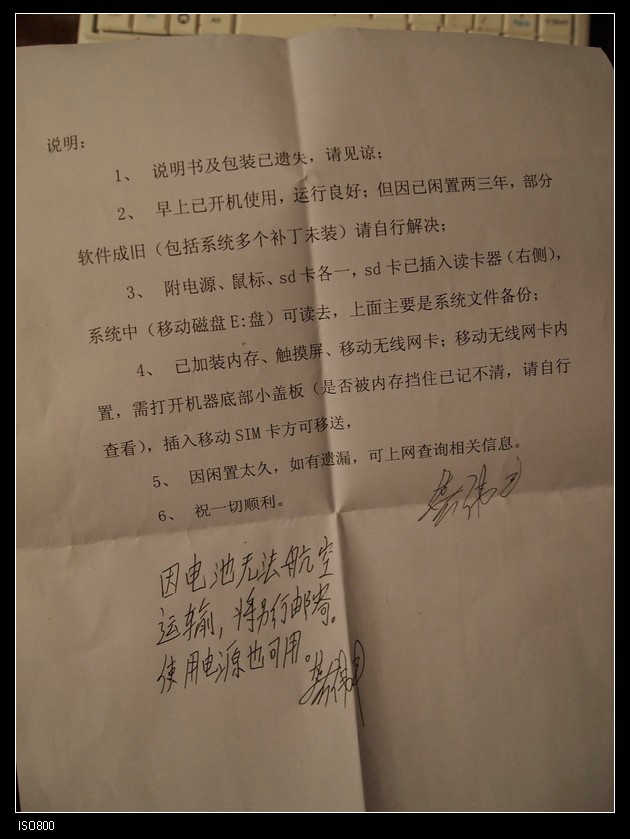 说明：
1、 说明书及包装已遗失，请见谅；
2、 早上已开机使用，运行良好；但因已闲置两三年，部分
软件成旧（包括系统多个补丁未装）请自行解决；
3、 附电源、鼠标、sd卡各一，sd卡已插入读卡器（右侧），
系统中（移动磁盘E:盘）可读去，上面主要是系统文件备份；
4、 已加装内存、触摸屏、移动无线网卡；移动无线网卡内
置，需打开机器底部小盖板（是否被内存挡住已记不清，请自行
查看），插入移动SIM卡方可移送，
5、 因闲置太久，如有遗漏，可上网查询相关信息。
6、 祝一切顺利。
因电池无法航空
运输，将另行邮寄。
使用电源也可用。
ISO800